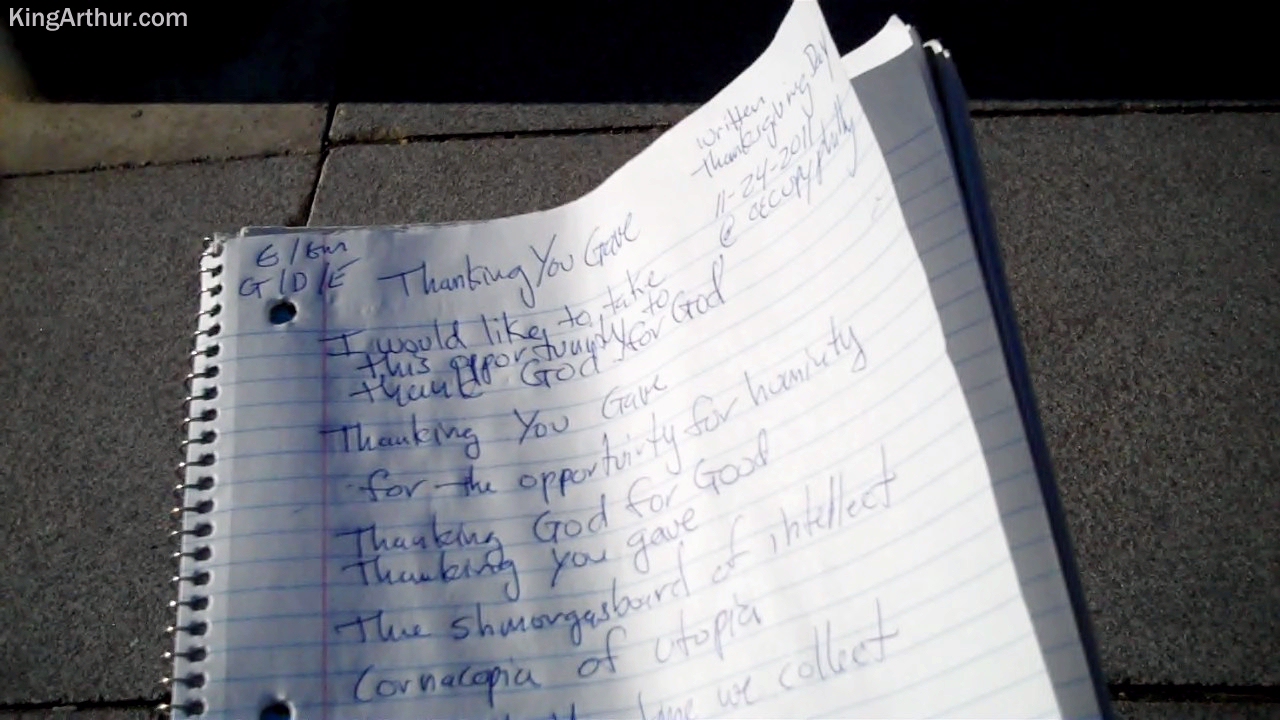 KingArthur.com
written
thanksgiving Day
11-24-2011
@ occupyphilly
E/Em
G/D/E
Thanking You Gave
I would like to take
this opportunity to
thank God for God
Thanking You Gave
for the opportuinty for huminity
Thanking God for Good
Thanking You gave
The shmorgasboard of intellect
Cornacopia of utopia
we collect